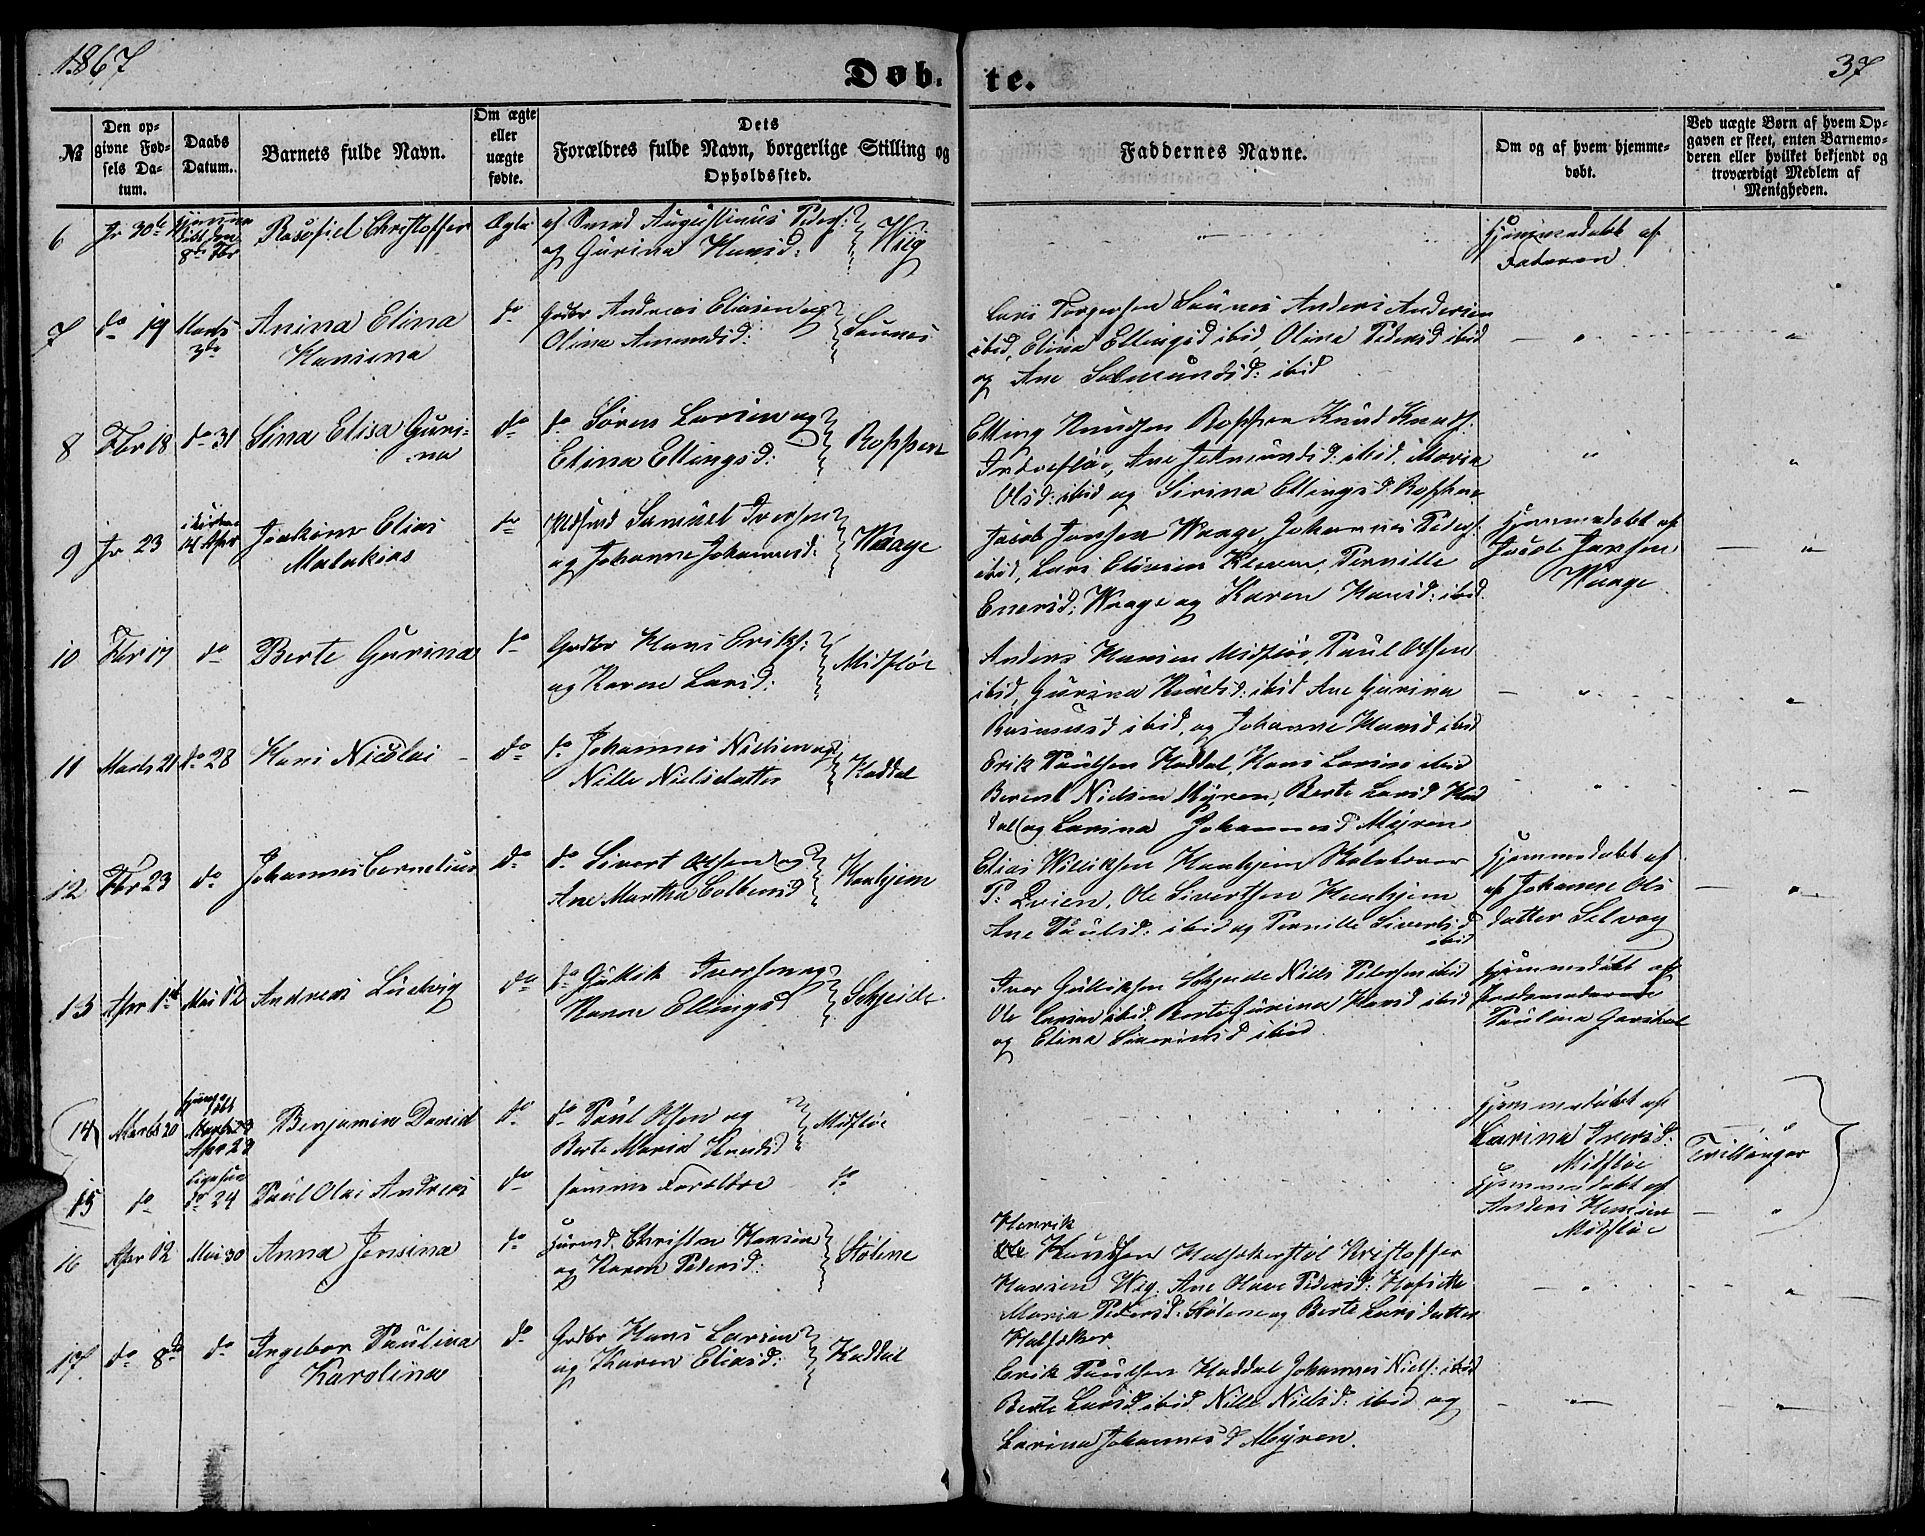 1867
Døb-
te.
37
№
Den op-
givne Fød-
sels Da-
tum.
Daabs
Datum.
Barnets fulde Navn.
Om ægte
eller
uægte
fødte.
Dets
Forældres fulde Navn, borgerlige Stilling og
Opholdssted.
Faddernes Navne.
Om og af hvem hjemme-
døbt.
Ved uægte Børn af hvem Op-
gaven er skeet, enten Barnemo-
deren eller hvilket bekjendt og
troværdigt Medlem af
Menigheden.
6 Jr 30te 8de Fbr Christoffer Ægte af Augustinus Peders: Wiig
og Gurina Hansd:
Hjemmedøbt af
Faderen
7 do 19 Marts Anina Elina do Gdbr Andreas Eliasen og Saunes
3de Hansina Olina Amundsd:
Lars Torgersen Saunes Anders Andersen
ibid, Elina Ellingsd ibid Olina Pedersd ibid
og Ane Salmundsd: ibid
8 Fbr 18 do 31 Sina Elisa Guri- do do Søren Larsen og Roppen
-na Elina Ellingsd:
Elling Knudsen Roppen Knud Knuds:
Indrefløe, Ane Amundsd: ibid, Maria
Olsd: ibid og Sirina Ellingsd: Roppen
9 Jr 23 14 Apr Joakim Elias do Samuel Iversen Waage
Malakias og Johanne Johannesd:
Jacob Jansen Waage, Johannes Peders:
ibid, Lars Eliasen Kleven, Pernille
Enersd: Waage og Karen Hansd: ibid
Hjemmedøbt af
Jacob Jansen
Waage
10 Fbr 17 do Berte Gurina do Grdbr Hans Eriks: Midfløe
og Karen Larsd:
Anders Hansen Midfløe, Paul Olsen
ibid, Gurina Knudsd: ibid Ane Gurina
Rasmusd ibid, og Johanne Hansd ibid
11 Marts 21 do 28 Hans Nicolai do do Johannes Nielsen og Haddal
Nille Nielsdatter
Erik Paulsen Haddal, Hans Larsen ibid
Berent Nielsen Myren, Berte Larsd Had
dal og Larina Johannesd Myren
12 Fbr 23 do Johannes Cornelius do do Sivert Olsen og Haahjem
Ane Martha Colbensd
Elias Williksen Haahjem Skolelærer
P: Qvien, Ole Sivertsen Haahjem
Ane Paulsd: ibid og Pernille Sivertsd
ibid
Hjemmedøbt af
af Johanne Ols
datter Selvog
13 Apr 1st Mai 12 Andreas Ludvig do do Gullik Iversen og Schjeide
Karen Ellingsd
Iver Gulliksen Schjeide Niels Petersen ibid
Ole Larsen ibid. Berte Gurina Hansd ibid
og Elina Severinsd ibid
Hjemmedøbt af
Jordemoderen
Paulina Garshol
14 Marts 20 Apr 22 Benjamin Daniel do do Paul Olsen og Midfløe
Berte Maria Knudsd
Hjemmedøbt af
Larina Iversd:
Midfløe
Trillinger
15 do do 24 Paul Olai Andreas do samme Forældre do
Hjemmedøbt af
Anders Hansen
Midfløe
16 Apr 12 Mai 30 Anna Jensina do Huusmd. Christen Hansen Stølene
og Karen Pedersd:
Henrik
Ole Knudsen Halskerstøl Kristoffer
Hansen Wig, Ane Oline Pedersd:
Maria Pedersd: Stølene og Berte Larsdatter
Halsker.
17 do 8de do Ingebor Paulina do Grdbr Hans Larsen Haddal
Karolina og Karen Eliasd:
Erik Paulsen Haddal Johannes Niels: ibid
Berte Larsd: ibid Nille Nielsd: ibid og
Larina Johannesd Myren.